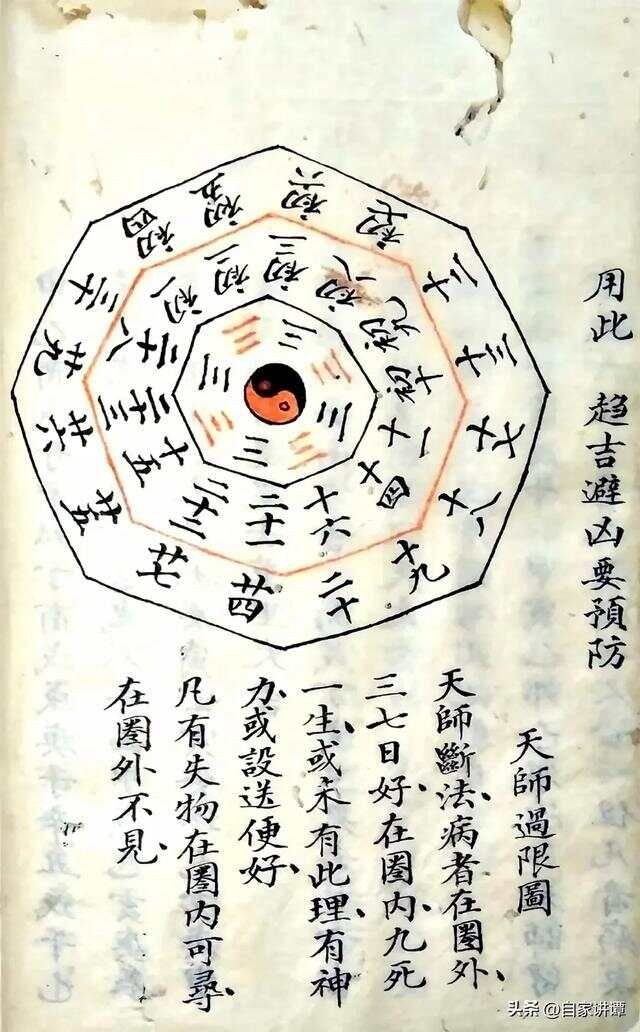 用此 趨吉避凶要預防
天師過限圖
天師斷法、病者在圈外、
三七日好、在圈內、九死
一生、或未有此理、有神
力、或設送便好、
凡有失物在圈內可尋、
在圈外不見、
初四
初五
初六
初七
十二
十三
十七
十八
十九
二十
廿四
廿七
廿五
廿六
廿九
三十
初一
初二
初三
初八
初九
初十
十一
十四
十六
二十一
二十二
十五
二十三
二十八
头条 @自家讲谭